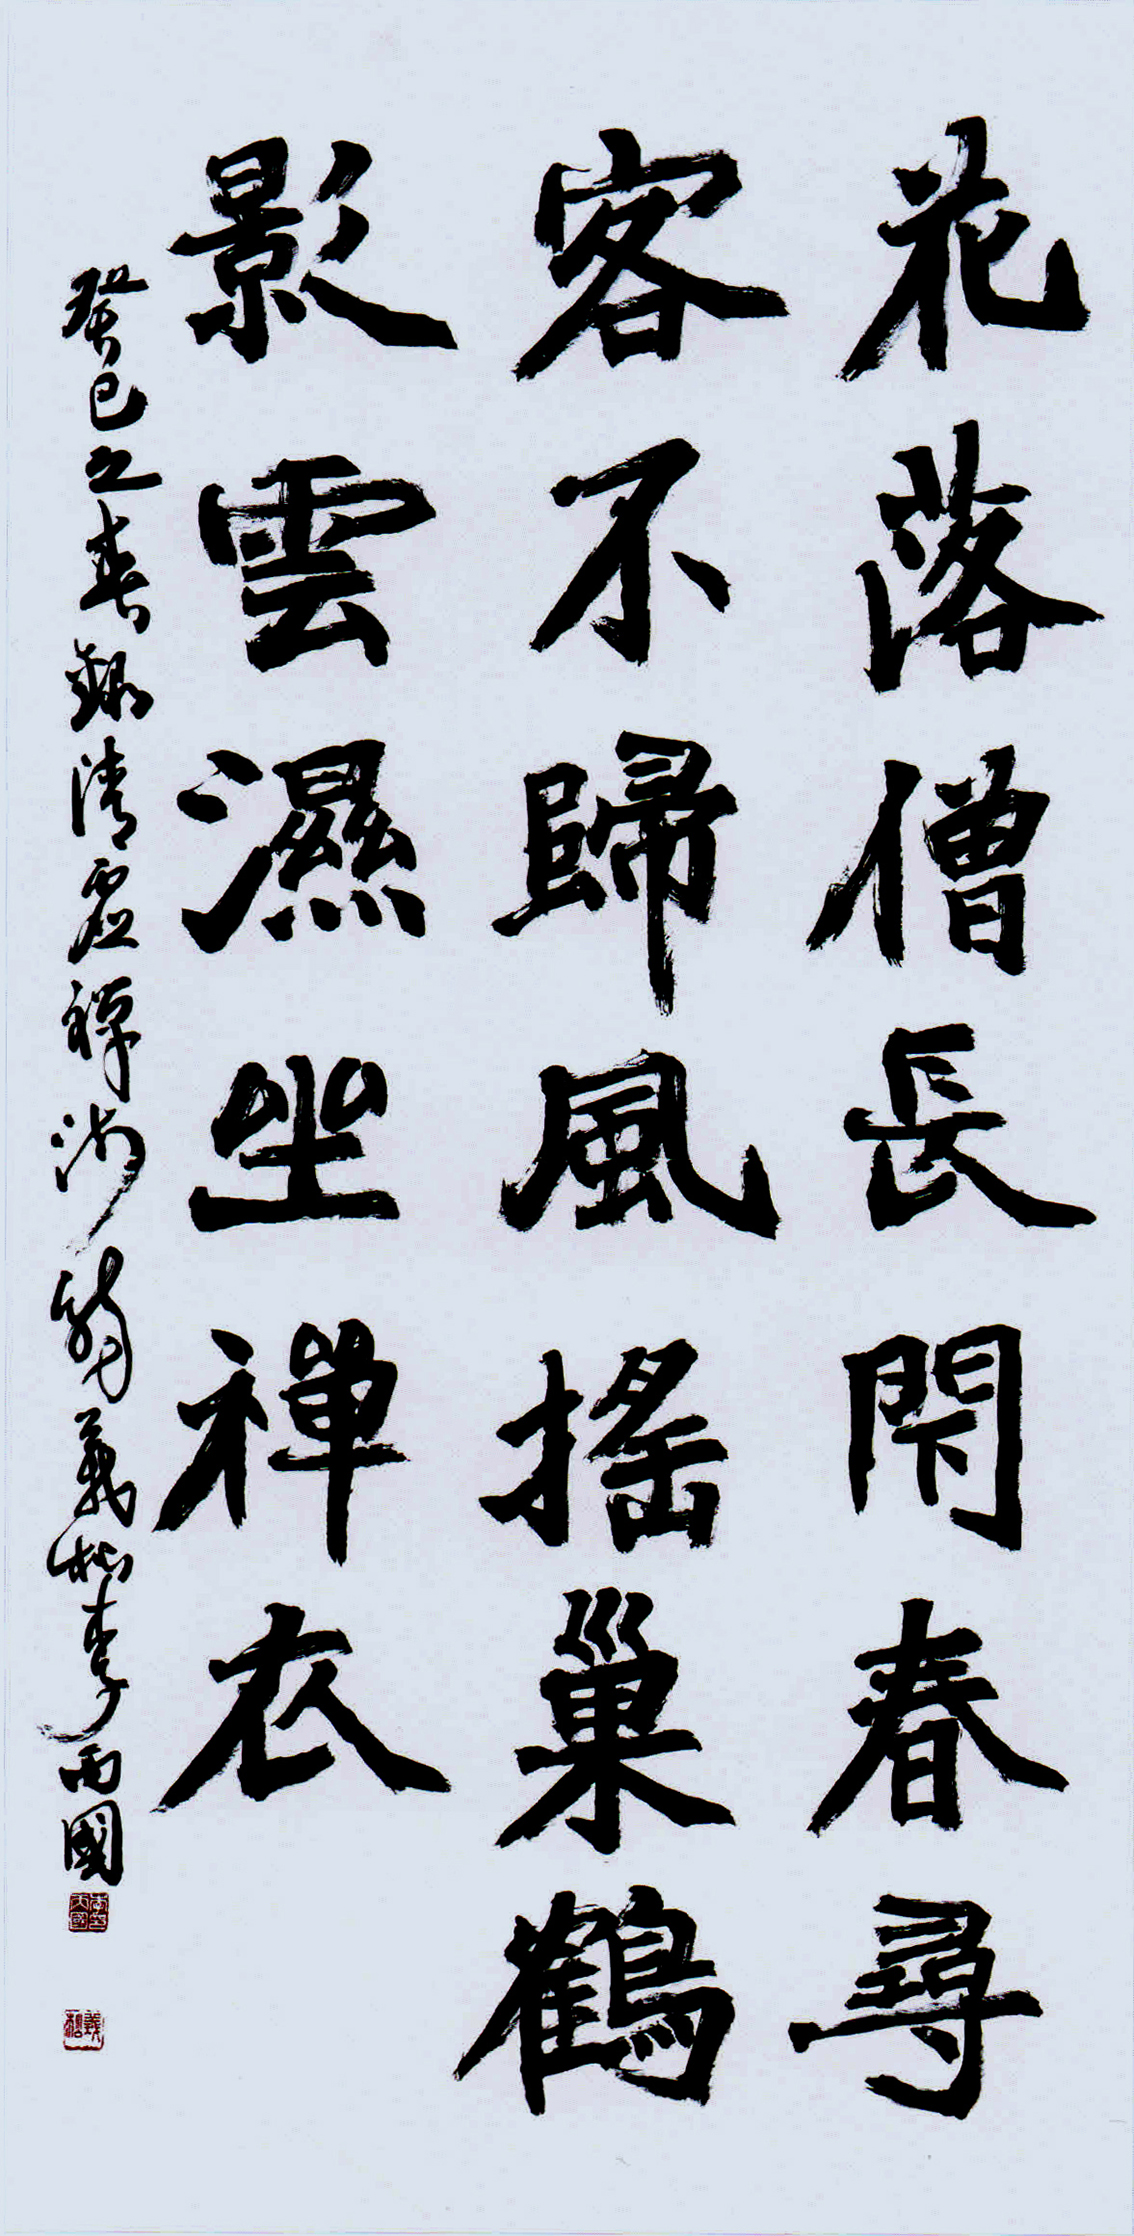 花落僧長閑春尋
客不歸風搖巢鶴
影雲濕坐禪衣
癸巳之春錄清虛禪師詩義松李丙國